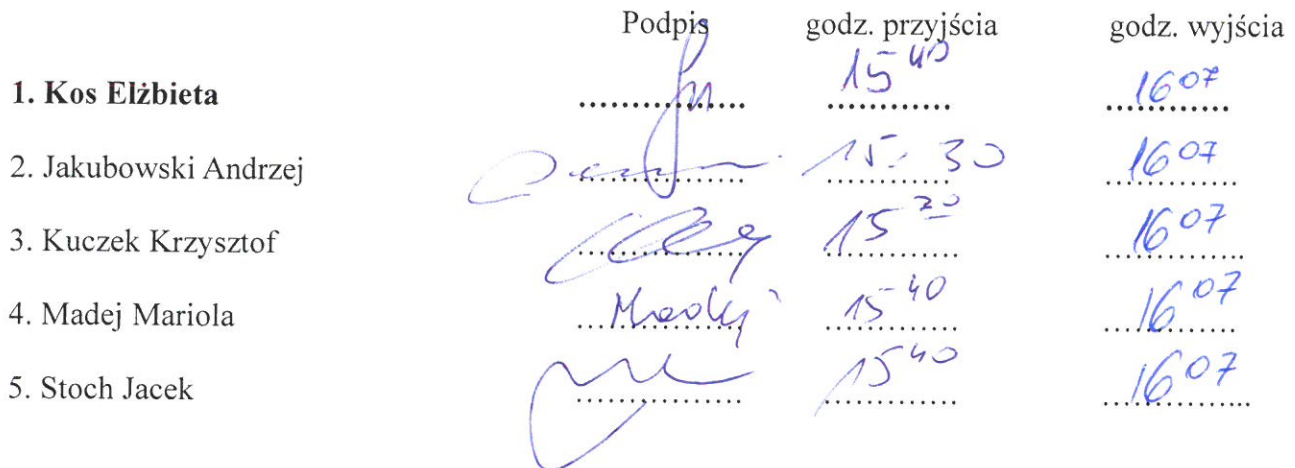 Podpis godz. przyjścia godz. wyjścia
1. Kos Elżbieta .................. 15 40 ............. 16 07 .............
2. Jakubowski Andrzej .................. 15. 30 ............. 16 07 .............
3. Kuczek Krzysztof .................. 15 ............. 16 07 .............
4. Madej Mariola .................. Madej 15 40 ............. 16 07 .............
5. Stoch Jacek .................. 15 40 ............. 16 07 .............